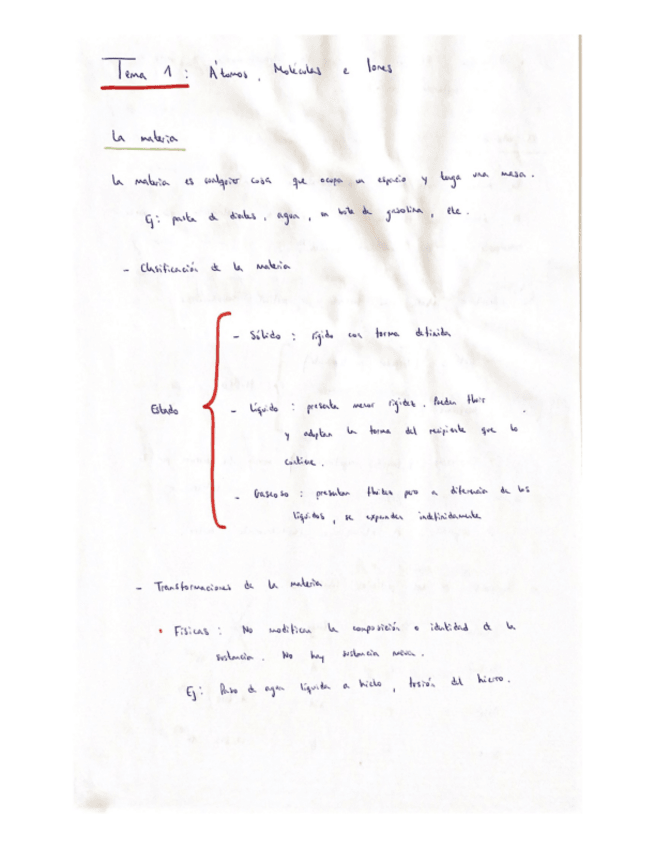 Tema 1 : Átomos, Moléculas e Iones
La materia
La materia es cualquier cosa que ocupa un espacio y tenga una masa.
Ej: pasta de dientes, agua, un bote de gasolina, etc.
- Clasificación de la materia
Estado
- Sólido : rígido con forma definida
- Líquido : presenta menor rigidez. Pueden fluir
y adoptan la forma del recipiente que lo
contiene.
- Gaseoso : presentan fluidez pero a diferencia de los
líquidos, se expanden indefinidamente
- Transformaciones de la materia
• Físicas : No modifican la composición o identidad de la
sustancia. No hay sustancia nueva.
Ej: Paso de agua líquida a hielo, fusión del hierro.